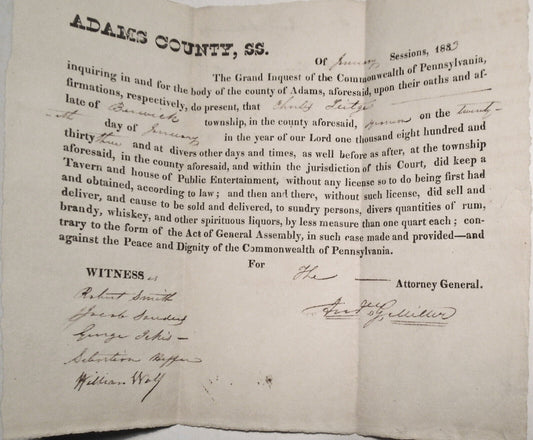 ADAMS COUNTY, SS.
Of January Sessions, 1833
The Grand Inquest of the Commonwealth of Pennsylvania,
inquiring in and for the body of the county of Adams, aforesaid, upon their oaths and af-
firmations, respectively, do present, that Charles
late of Berwick township, in the county aforesaid, yeoman on the twenty-
day of January in the year of our Lord one thousand eight hundred and
thirty three and at divers other days and times, as well before as after, at the township
aforesaid, in the county aforesaid, and within the jurisdiction of this Court, did keep a
Tavern and house of Public Entertainment, without any license so to do being first had
and obtained, according to law; and then and there, without such license, did sell and
deliver, and cause to be sold and delivered, to sundry persons, divers quantities of rum,
brandy, whiskey, and other spirituous liquors, by less measure than one quart each; con-
trary to the form of the Act of General Assembly, in such case made and provided—and
against the Peace and Dignity of the Commonwealth of Pennsylvania.
For The Attorney General.
WITNESS es
Miller
Robert Smith
Jacob Sanders
George
William Wolf